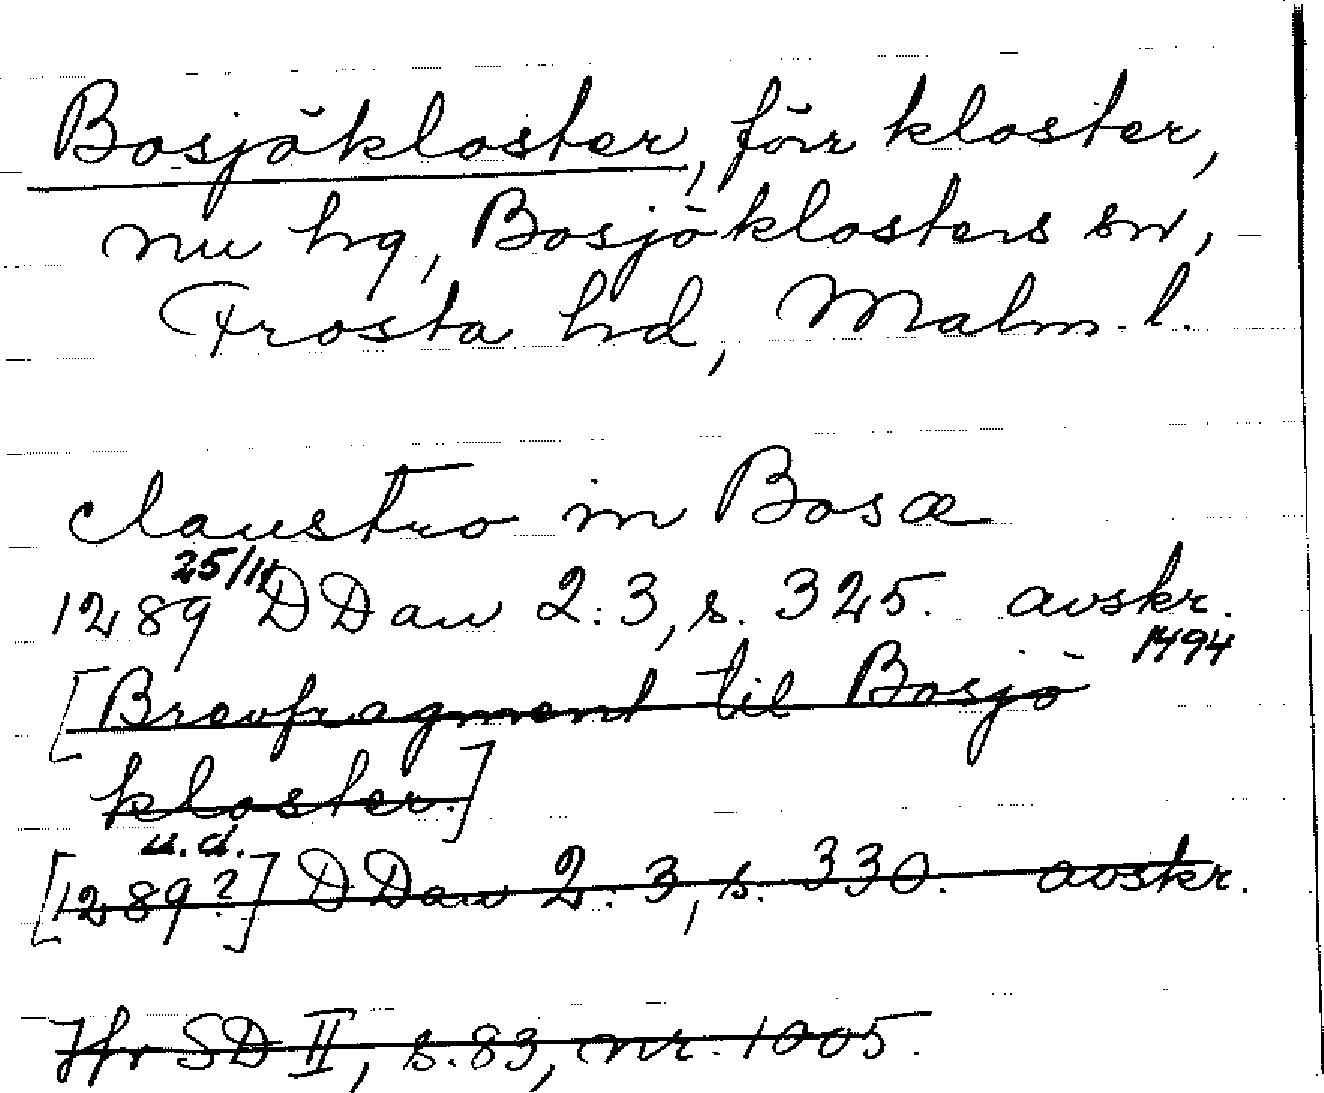 Bosjökloster, förr kloster,
nu hg, Bosjöklosters sn,
Frosta hd, Malm. l.
claustro in Bosæ
25/11
1289 DDan 2:3, s. 325. avskr.
1494
[Brevfragment til Bosjö
kloster.]
u.d.
[1289?] DDan 2:3, s. 330. avskr.
Jfr SD II, s. 83, nr. 1005.